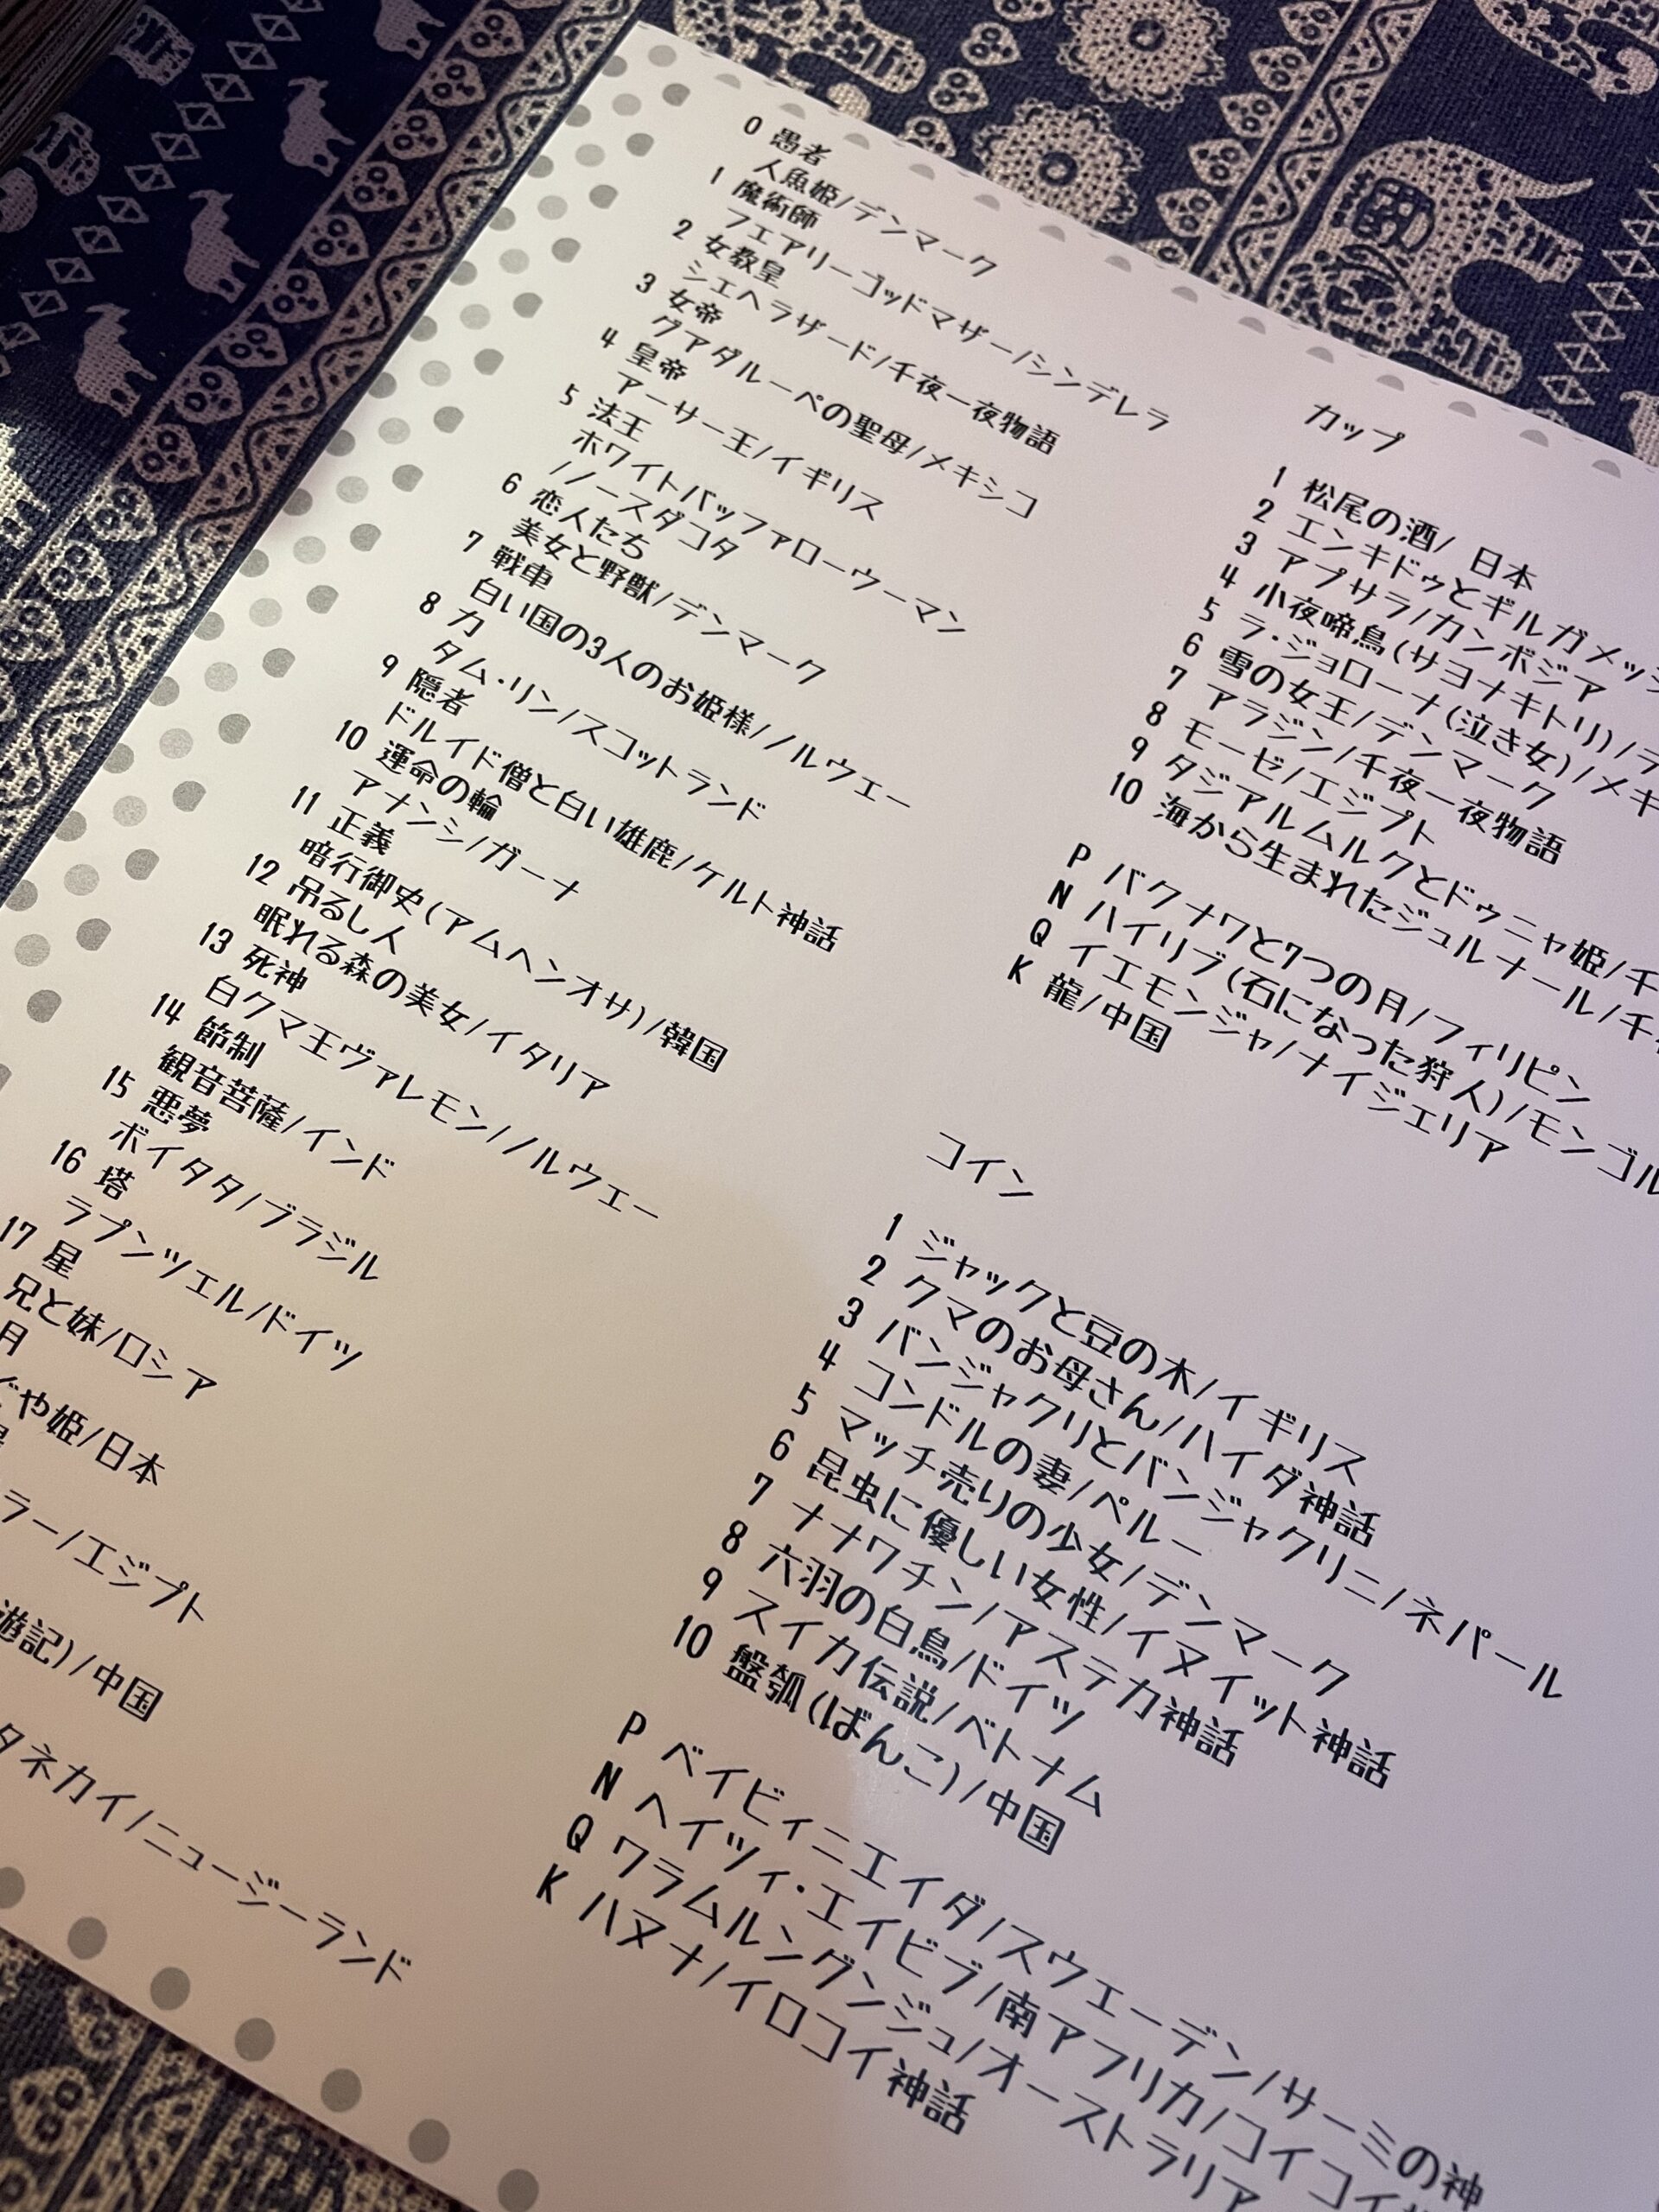 0 愚者
人魚姫/デンマーク
1 魔術師
フェアリーゴッドマザー/シンデレラ
2 女教皇
シエヘラザード/千夜一夜物語
3 女帝
グアダルーペの聖母/メキシコ
4 皇帝
アーサー王/イギリス
5 法王
ホワイトバッファローウーマン
/ノースダコタ
6 恋人たち
美女と野獣/デンマーク
7 戦車
白い国の3人のお姫様/ノルウェー
8 力
タム・リン/スコットランド
9 隠者
ドルイド僧と白い雄鹿/ケルト神話
10 運命の輪
アナンシ/ガーナ
11 正義
暗行御史(アムヘンオサ)/韓国
12 吊るし人
眠れる森の美女/イタリア
13 死神
白クマ王ヴァレモン/ノルウェー
14 節制
観音菩薩/インド
15 悪夢
ボイタタ/ブラジル
16 塔
ラプンツェル/ドイツ
17 星
兄と妹/ロシア
月
ぐや姫/日本
ラー/エジプト
遊記)/中国
タネカイ/ニュージーランド
カップ
1 松尾の酒/ 日本
2 エンキドゥとギルガメッシ
3 アプサラ/カンボジア
4 小夜啼鳥(サヨナキトリ)/デ
5 ラ・ジョローナ(泣き女)/メキ
6 雪の女王/デンマーク
7 アラジン/千夜一夜物語
8 モーゼ/エジプト
9 タジアルムルクとドゥニャ姫/千
10 海から生まれたジュルナール/千
P バクナワと7つの月/フィリピン
N ハイリブ(石になった狩人)/モンゴル
Q イエモンジャ/ナイジェリア
K 龍/中国
コイン
1 ジャックと豆の木/イギリス
2 クマのお母さん/ハイダ神話
3 バンジャクリとバンジャクリニ/ネパール
4 コンドルの妻/ペルー
5 マッチ売りの少女/デンマーク
6 昆虫に優しい女性/イヌイット神話
7 ナナワチン/アステカ神話
8 六羽の白鳥/ドイツ
9 スイカ伝説/ベトナム
10 盤瓠(ばんこ)/中国
P ベイビィニエイダ/スウェーデン/サーミの神
N ヘイツィ・エイビブ/南アフリカ/コイコイ
Q ワラムルングンジュ/オーストラリア
K ハヌナ/イロコイ神話